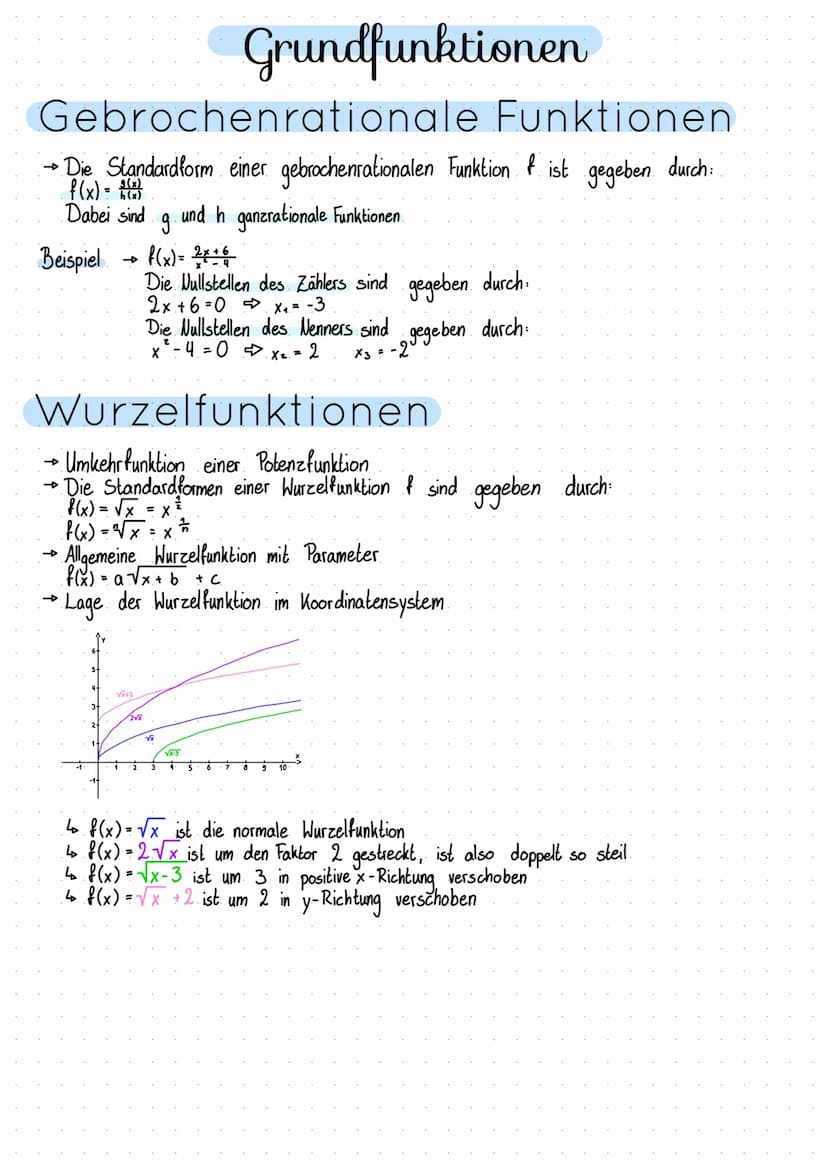 Grundfunktionen
Gebrochenrationale Funktionen
→ Die Standardform einer gebrochenrationalen Funktion f ist gegeben durch:
f(x) = g(x)/h(x)
Dabei sind g und h ganzrationale Funktionen
Beispiel → f(x) = 2x+6/x²-4
Die Nullstellen des Zählers sind gegeben durch:
2x + 6 = 0 ⇒ x₁ = -3
Die Nullstellen des Nenners sind gegeben durch:
x² - 4 = 0 ⇒ x₂ = 2 x₃ = -2
Wurzelfunktionen
→ Umkehrfunktion einer Potenzfunktion
→ Die Standardformen einer Wurzelfunktion f sind gegeben durch:
f(x) = √x = x^1/2
f(x) = ⁿ√x = x^1/n
→ Allgemeine Wurzelfunktion mit Parameter
f(x) = a√x + b + c
→ Lage der Wurzelfunktion im Koordinatensystem
Y
6
5
4
√x+2
3
2√x
2
√x
1
√x-3
x
-1 1 2 3 4 5 6 7 8 9 10
-1
↳ f(x) = √x ist die normale Wurzelfunktion
↳ f(x) = 2√x ist um den Faktor 2 gestreckt, ist also doppelt so steil
↳ f(x) = √x-3 ist um 3 in positive x-Richtung verschoben
↳ f(x) = √x +2 ist um 2 in y-Richtung verschoben